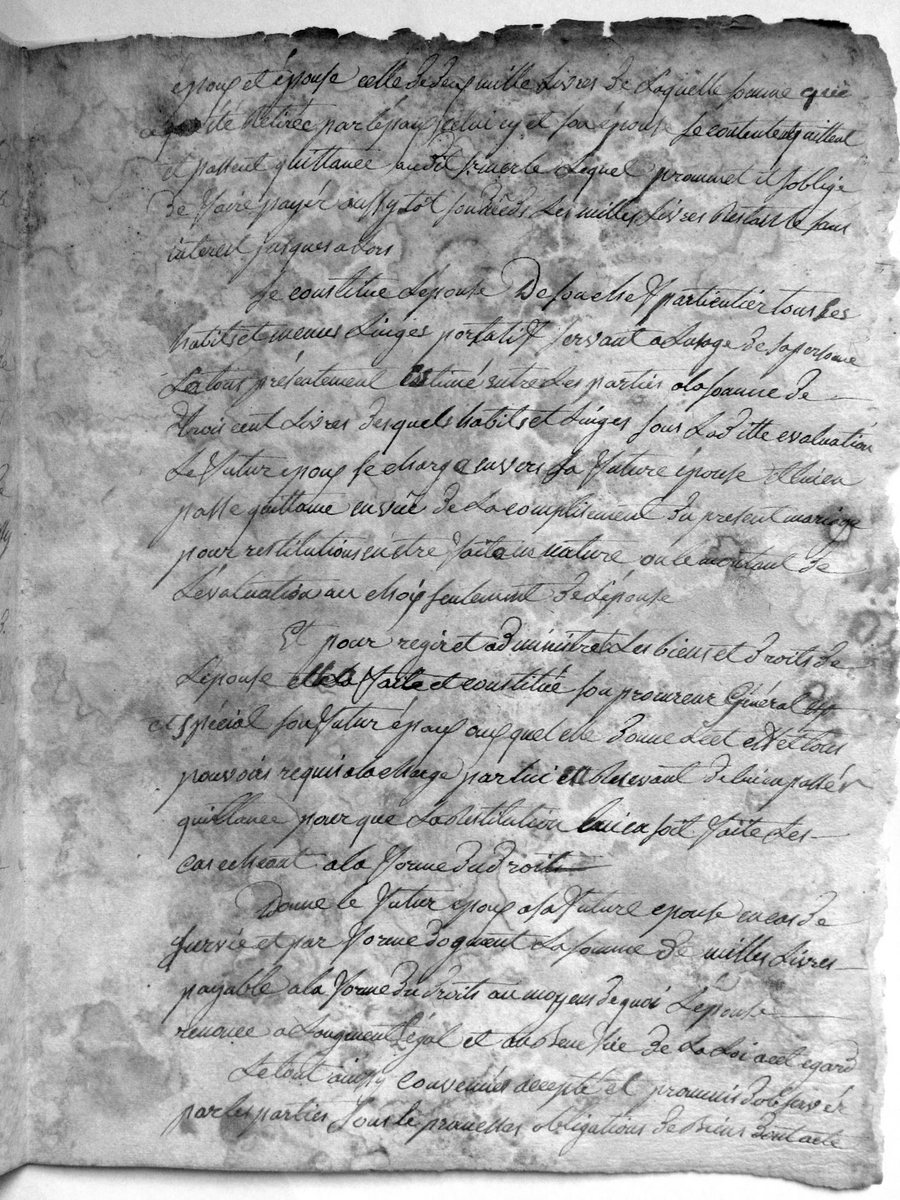 époux et épouse celle de deux mille Livres de Laquelle somme que
a été Retirée par lépoux celui cy et son épouse se contentent quittent
et passent quittance audit Lequel prommet et soblige
de faire payér aussytôt son deceds Les milles Livres Restante sans
interest jusques a Lors
Se constitue Lépouse De son chef particuliér tous ses
habits et menus Linges portatif servant a Lusage de sa personne
Le tous présentement Estimé entre Les parties a la somme de
trois cent Livres desquels habits et Linges sous Laditte evaluation
Le futur epoux se charge envers La future épouse et lui en
passe quittance en vüe de Lacomplissement du present mariage
pour restitutions en etre faite en nature ou le montant de
Lévaluation au choix seulement de Lépouse
Et pour regir et administrér Les biens et droits de
Lépouse elle a faite et constitué son procureur Général et
et spécial son futur époux auquel elle donne et tous
pouvoirs requis a la charge par lui en recevant de lui en passér
quittance pour que La Restitution lui en soit faite Les
cas echeant a la forme du droits
Donne le futur epoux a sa future epouse en cas de
survie et par forme dogment La somme de milles Livres
payable a la forme du droits au moyens de quoi Lépouse
renonce a Laugment Légal et au benefice de La Loi a cet egard
Le tout ainsy convenüs accepté et prommis dobservér
par les parties sous le promesses obligations de biens dont acte